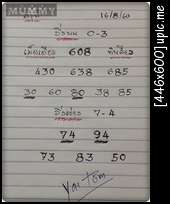 MUMMY
16/8/60
วิ่งบน 0-3
608
430 638 685
30 60 80 38 85
วิ่งล่าง 7-4
74 94
73 83 50
[446x600] upic.me